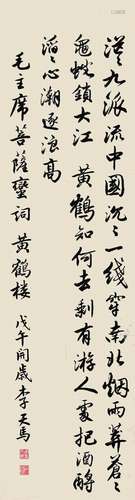 茫々九派流中國沉々一綫穿南北烟雨莽蒼々
龜蛇鎖大江 黄鶴知何去剩有游人處把酒酹
滔々心潮逐浪高
毛主席菩薩蠻詞 黄鶴楼 戊午開歲李天馬